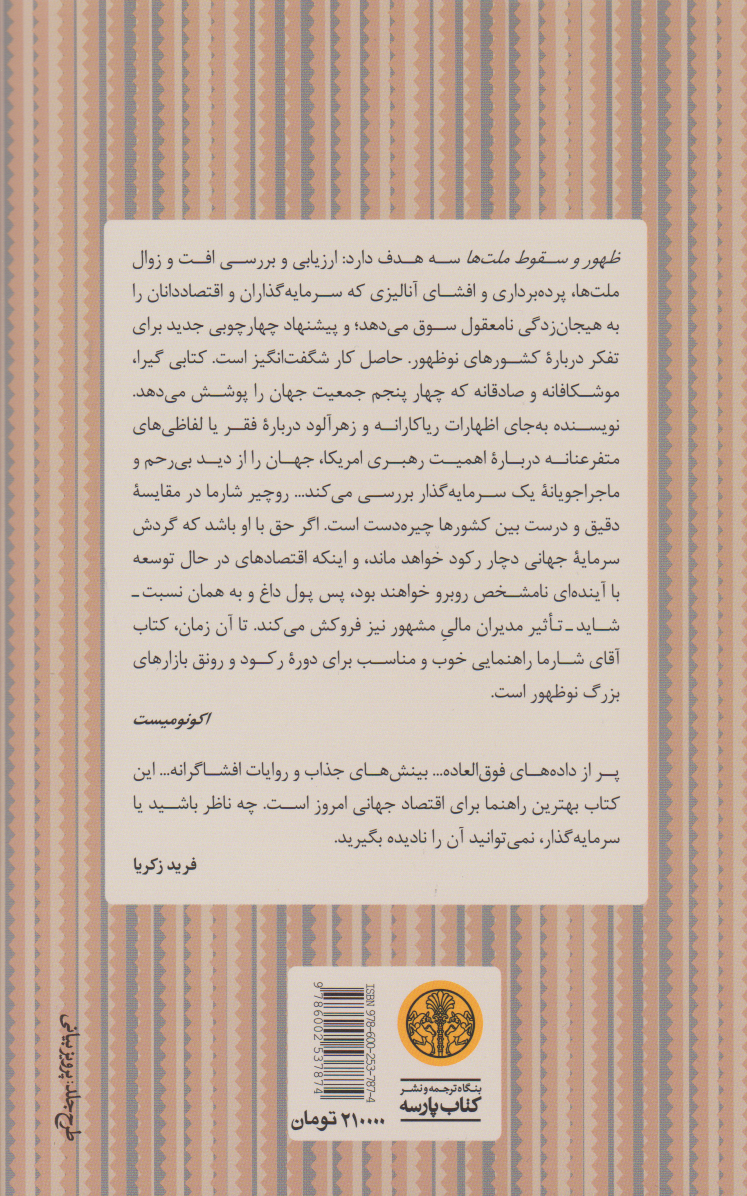 ظهور و سقوط ملت‌ها سه هدف دارد: ارزیابی و بررسی افت و زوال
ملت‌ها، پرده‌برداری و افشای آنالیزی که سرمایه‌گذاران و اقتصاددانان را
به هیجان‌زدگی نامعقول سوق می‌دهد؛ و پیشنهاد چهارچوبی جدید برای
تفکر دربارهٔ کشورهای نوظهور. حاصل کار شگفت‌انگیز است. کتابی گیرا،
موشکافانه و صادقانه که چهار پنجم جمعیت جهان را پوشش می‌دهد.
نویسنده به‌جای اظهارات ریاکارانه و زهرآلود دربارهٔ فقر یا لفاظی‌های
متفرعنانه دربارهٔ اهمیت رهبری امریکا، جهان را از دید بی‌رحم و
ماجراجویانهٔ یک سرمایه‌گذار بررسی می‌کند... روچیر شارما در مقایسهٔ
دقیق و درست بین کشورها چیره‌دست است. اگر حق با او باشد که گردش
سرمایهٔ جهانی دچار رکود خواهد ماند، و اینکه اقتصادهای در حال توسعه
با آینده‌ای نامشخص روبرو خواهند بود، پس پول داغ و به همان نسبت ـ
شاید ـ تأثیر مدیران مالیِ مشهور نیز فروکش می‌کند. تا آن زمان، کتاب
آقای شارما راهنمایی خوب و مناسب برای دورهٔ رکود و رونق بازارهای
بزرگ نوظهور است.
اکونومیست
پر از داده‌های فوق‌العاده... بینش‌های جذاب و روایات افشاگرانه... این
کتاب بهترین راهنما برای اقتصاد جهانی امروز است. چه ناظر باشید یا
سرمایه‌گذار، نمی‌توانید آن را نادیده بگیرید.
فرید زکریا
ISBN 978-600-253-787-4
9786002537874
بنگاه ترجمه و نشر
کتاب پارسه
۲۱۰۰۰۰ تومان
طرح جلد: پرویز بیانی